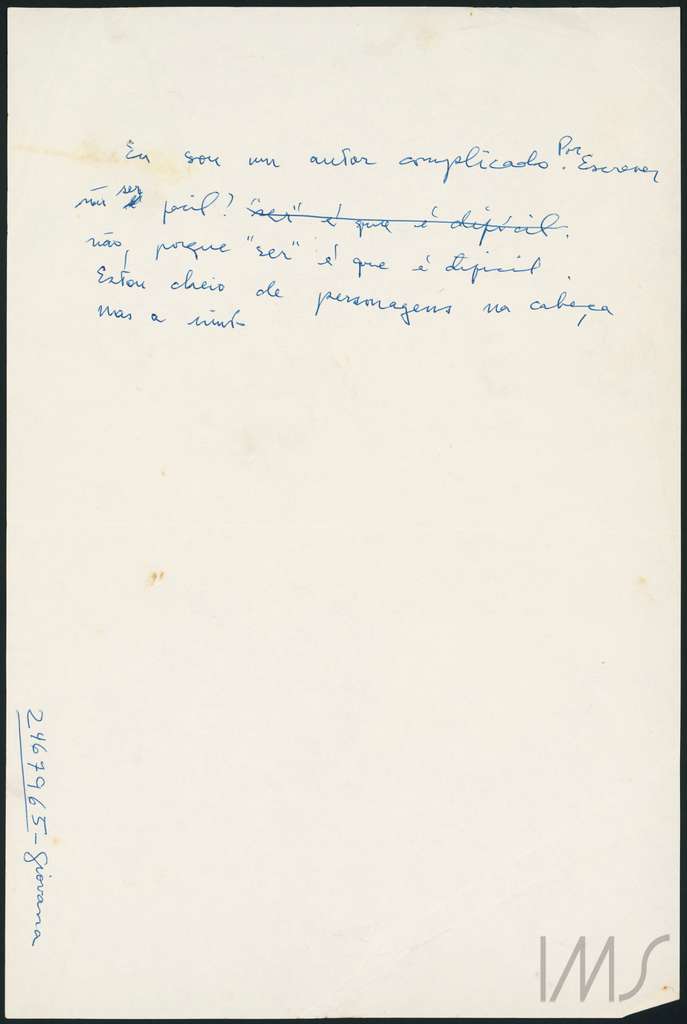 Eu sou um autor complicado. Por Escrever
ser fácil? "ser" é que é difícil.
não, porque "ser" é que é difícil.
Estou cheio de personagens na cabeça
mas a
2467965 - Giovana
IMS